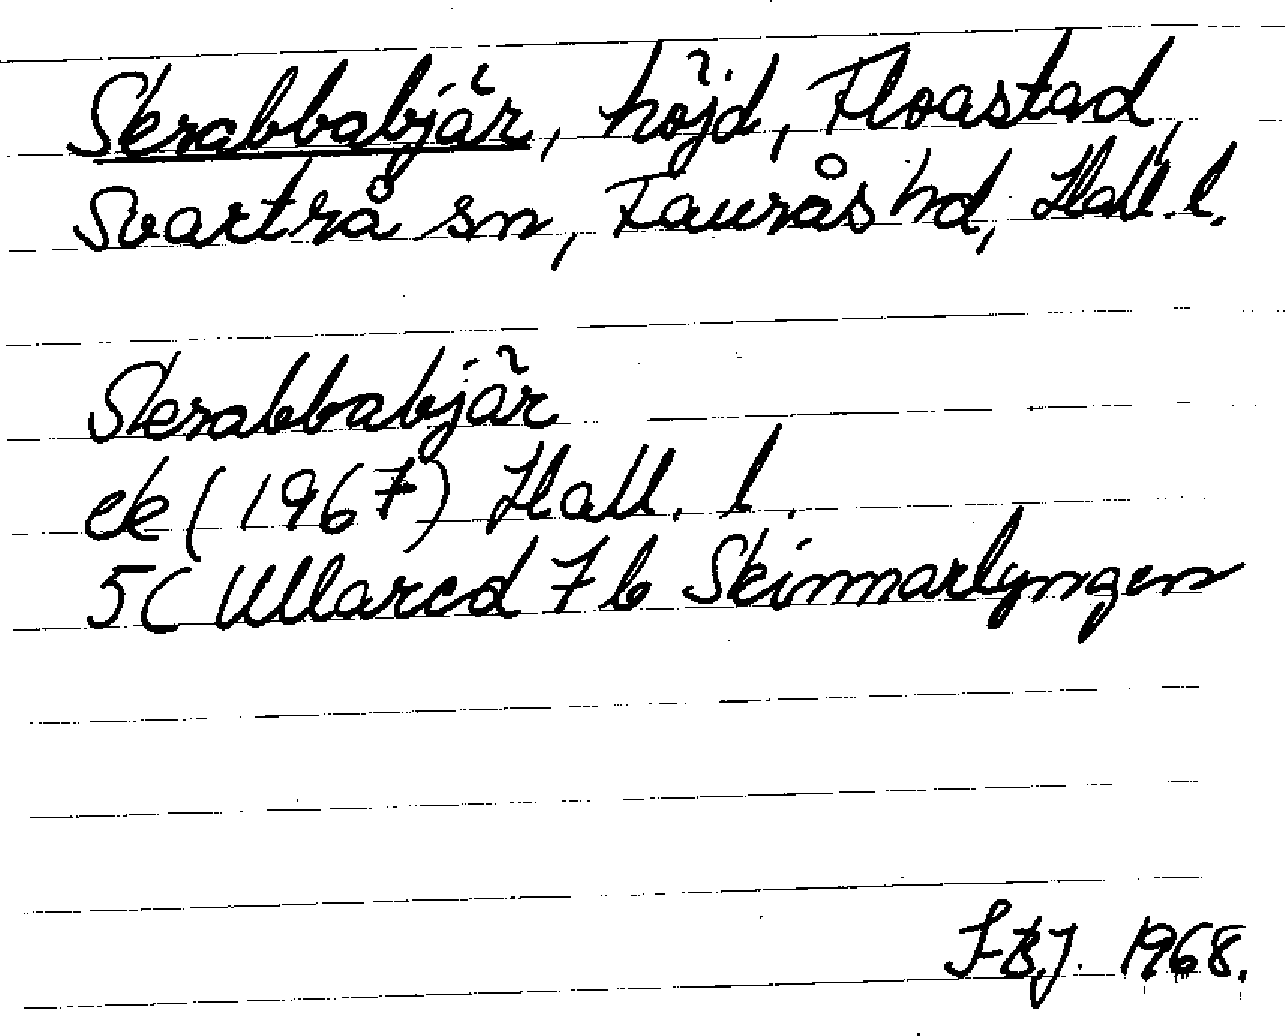 Skrabbabjär, höjd, Floastad,
Svartrå sn, Faurås hd, Hall. l.
Skrabbabjär
ek (1967) Hall. l.
5C Ullared 7b Skinnarlyngen
1968.